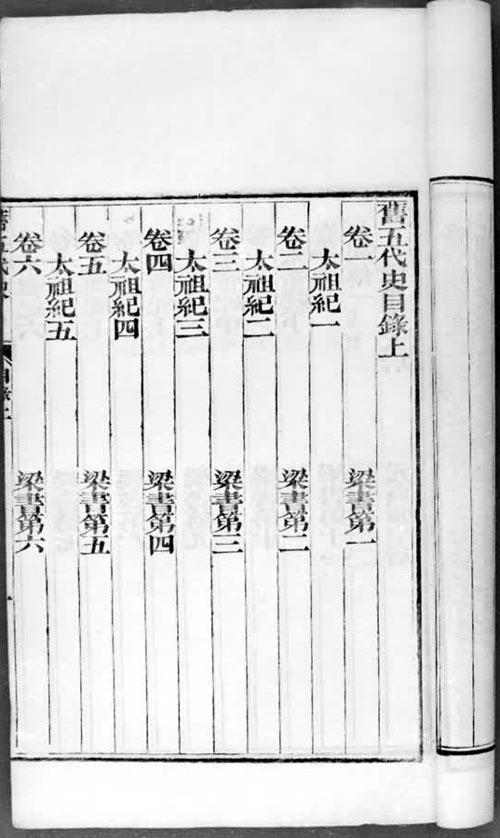 舊五代史目錄上
卷一 梁書第一
太祖紀一
卷二 梁書第二
太祖紀二
卷三 梁書第三
太祖紀三
卷四 梁書第四
太祖紀四
卷五 梁書第五
太祖紀五
卷六 梁書第六
舊五代史 目錄上